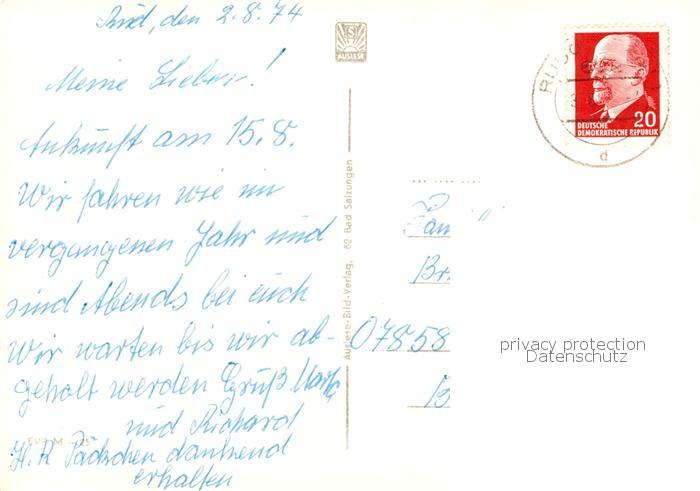 Rud, den 2.8.74
Meine Lieben!
Ankunft am 15.8.
Wir fahren wie im
vergangenen Jahr und
sind Abends bei euch
Wir warten bis wir ab-
geholt werden Gruß
und Richard
Päckchen dankend
erhalten
AUSLESE
Auslese-Bild-Verlag, 62 Bad Salzungen
20
DEUTSCHE
DEMOKRATISCHE REPUBLIK
d
Fam
Br
07858
B
privacy protection
Datenschutz